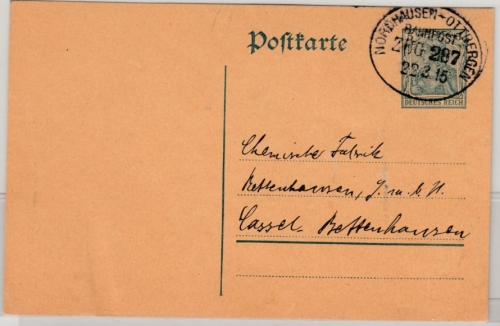 Postkarte
NORDHAUSEN-OTTBERGEN
BAHNPOST
ZUG 287
22.3.15
DEUTSCHES REICH
Chemische Fabrik
Bettenhausen, G. m. b. H.
Cassel-Bettenhausen